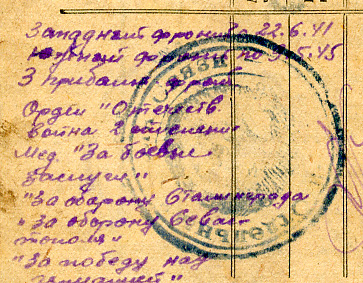 Западный фронт с 22.6.41
Южный фронт по 9.5.45
3 прибалт. фронт
Орден "Отечеств
война 2 степени
Мед. "За боевые
заслуги"
"За оборону Сталинграда
"За оборону Севас-
тополя"
"За победу над
германией"